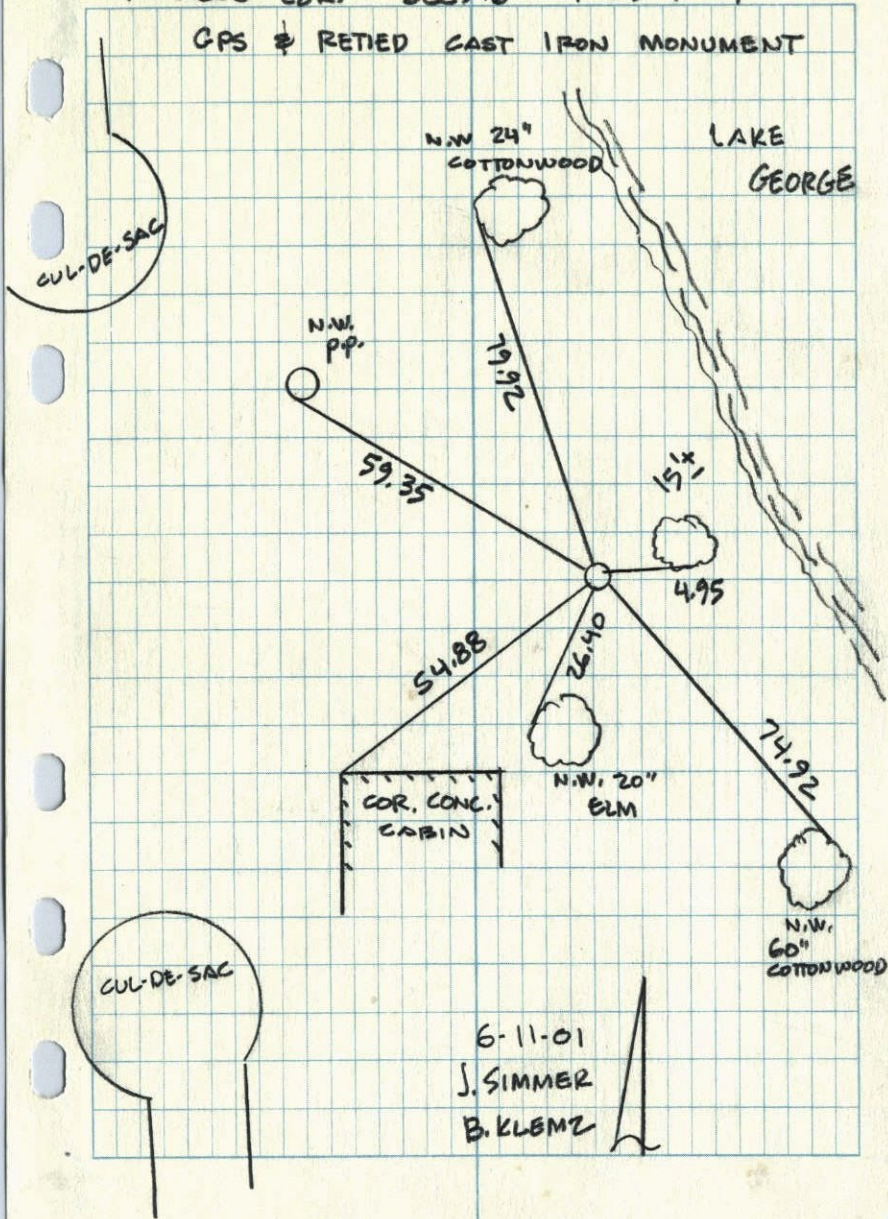 GPS & RETIED CAST IRON MONUMENT
N.W 24"
COTTONWOOD
LAKE
GEORGE
CUL-DE-SAC
N.W.
P.P.
79.92
59.35
15"
4.95
54.88
26.40
74.92
COR. CONC.
CABIN
N.W. 20"
ELM
N.W.
60"
COTTONWOOD
CUL-DE-SAC
6-11-01
J. SIMMER
B. KLEMZ